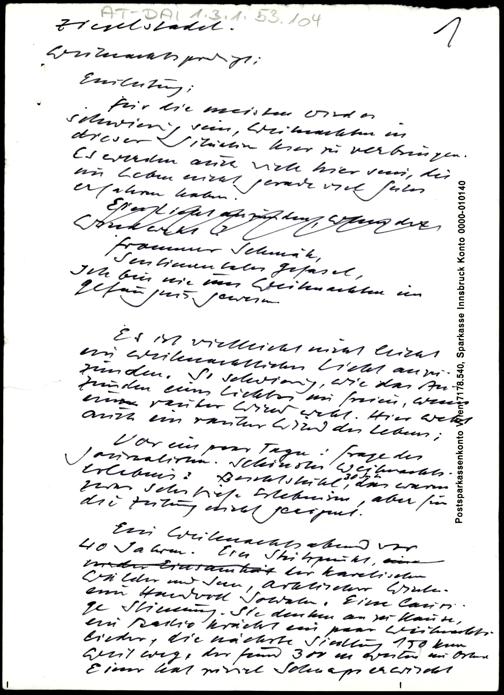 AT-DAI 1.3.1.53.104
1
Ziegelstadel.
Weihnachtspredigt:
Einleitung:
Für die meisten wird es
schwierig sein, Weihnachten in
dieser Situation hier zu verbringen.
Es werden auch viele hier sein, die
im Leben nicht gerade viel Gutes
erfahren haben.
frommer Schmäh,
Sentimentales Gefasel,
Ich bin nie zu Weihnachten im
Gefängnis gewesen
Es ist vielleicht nicht leicht
ein weihnachtliches Licht anzu-
zünden. So schwierig, wie das An-
zünden eines Lichtes im Freien, wenn
ein rauher Wind weht. Hier weht
auch ein rauher Wind des Lebens;
Vor ein paar Tagen: Frage des
Journalisten. Schönstes Weihnachts-
erlebnis? das waren
zwar sehr tiefe Erlebnisse, aber für
die Zeitung nicht geeignet.
Ein Weihnachtsabend vor
40 Jahren. Ein Stützpunkt,
der karelischen
Wälder und Seen, arktischer Winter.
eine Handvoll Soldaten. Eine
ge Stimmung. Sie denken an zu Hause,
ein Radio krächzt ein paar Weihnachts-
lieder, die nächste Siedlung 150 km
weit weg, der Feind 300 m
Einer hat zuviel Schnaps erwischt
Postsparkassenkonto Wien 7178.540, Sparkasse Innsbruck Konto 0000-010140